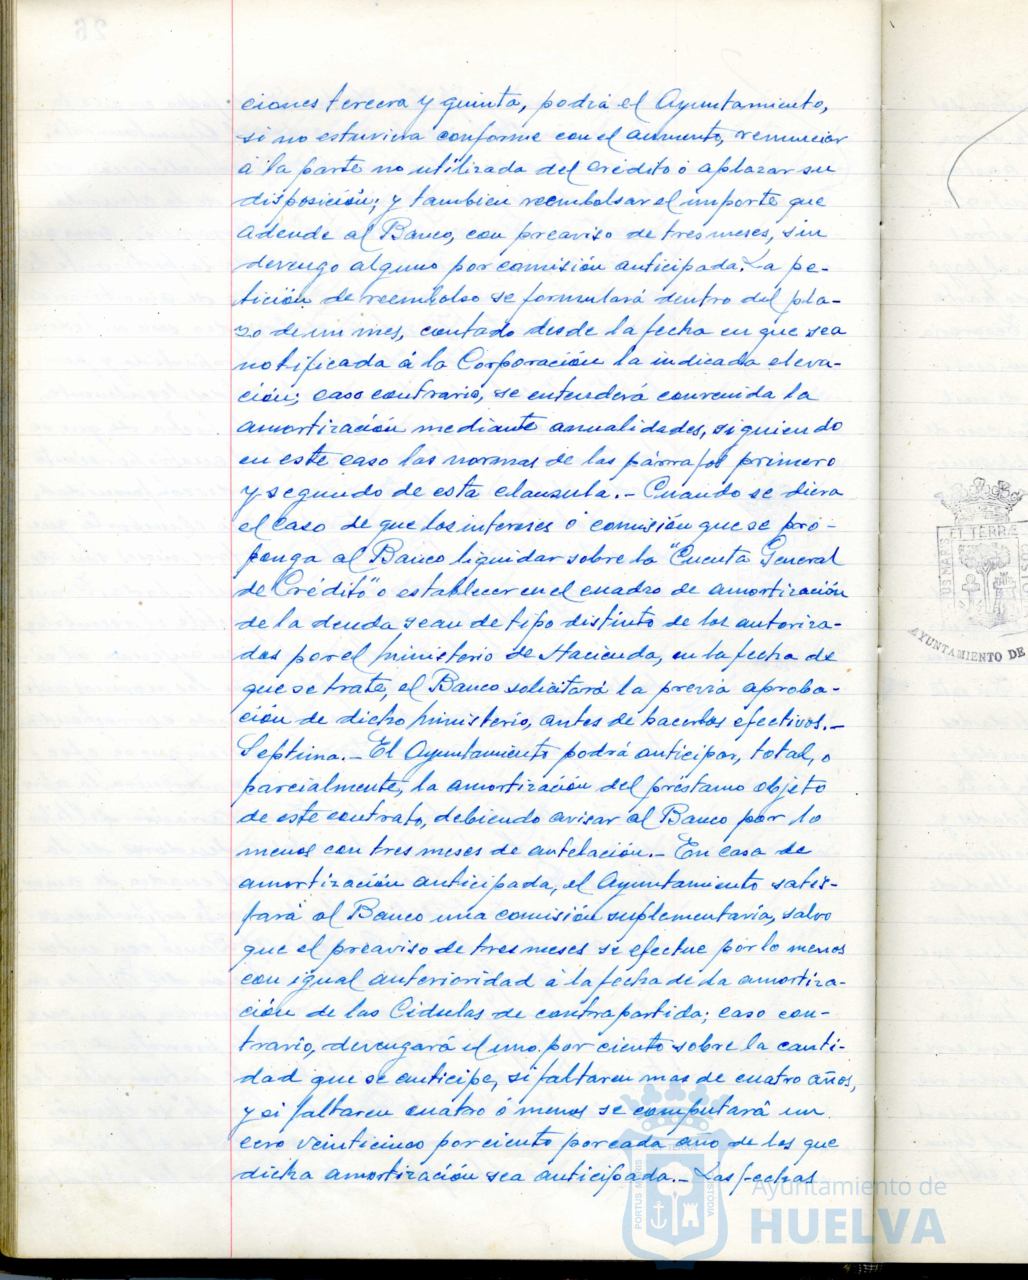 ciones tercera y quinta, podrá el Ayuntamiento,
si no estuviera conforme con el aumento, renunciar
á la parte no utilizada del crédito ó aplazar su
disposición; y tambien reembolsar el importe que
adeude al Banco, con preaviso de tres meses, sin
devengo alguno por comisión anticipada. La pe-
tición de reembolso se formulará dentro del pla-
zo de un mes, contado desde la fecha en que sea
notificada á la Corporación la indicada eleva-
ción; caso contrario, se entenderá convenida la
amortización mediante anualidades, siguiendo
en este caso las normas de los párrafos primero
y segundo de esta clausula.- Cuando se diera
el caso de que los intereses ó comisión que se pro-
ponga al Banco liquidar sobre la "Cuenta General
de Crédito" o establecer en el cuadro de amortización
de la deuda sean de tipo distinto de los autoriza-
dos por el Ministerio de Hacienda, en la fecha de
que se trate, el Banco solicitará la previa aproba-
ción de dicho Ministerio, antes de hacerlos efectivos.-
Septima.- El Ayuntamiento podrá anticipar, total, o
parcialmente, la amortización del préstamo objeto
de este contrato, debiendo avisar al Banco por lo
menos con tres meses de antelación.- En caso de
amortización anticipada, el Ayuntamiento satis-
fará al Banco una comisión suplementaria, salvo
que el preaviso de tres meses se efectue por lo menos
con igual anterioridad á la fecha de la amortiza-
ción de las Cédulas de contrapartida; caso con-
trario, devengará el uno por ciento sobre la canti-
dad que se anticipe, si faltaren mas de cuatro años,
y si faltaren cuatro ó menos se computará un
cero veinticinco por ciento por cada año de los que
dicha amortización sea anticipada.- Las fechas
ET TERRÆ
AYUNTAMIENTO DE
PORTUS MARIS
ET TERRÆ
CUSTODIA
Ayuntamiento de
HUELVA